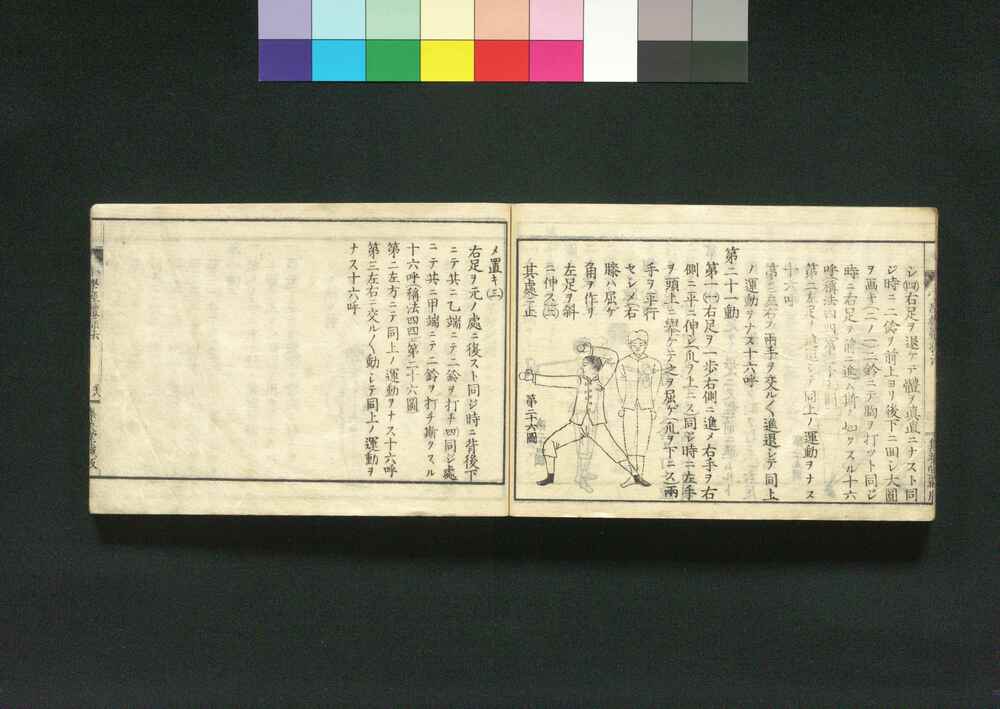 シ㈣右足ヲ退ケテ體ヲ眞直ニナスト同
ジ時ニ二鈴ヲ前上ヨリ後下ニ回シ大圓
ヲ畫キ(二ノ一)二鈴ニテ胸ヲ打ツト同ジ
時ニ右足ヲ前ニ進ム斯ノ如クスル十六
呼稱法四四
第二左足ノ進退ニテ同上ノ運動ヲナス
十六呼
第三左右ノ兩手ヲ交ル〱進退シテ同上
ノ運動ヲナス十六呼
第二十一動
第一㈠右足ヲ一歩右側ニ進メ右手ヲ右
側ニ平ニ伸シ爪ヲ上ニス同ジ時ニ左手
ヲ頭上ニ擧ゲテ之ヲ屈ゲ爪ヲ下ニス兩
手ヲ平行
セシメ右
膝ハ屈ゲ
角ヲ作リ
左足ヲ斜
ニ伸ス㈡
其處ニ止
第二十六圖
メ置キ㈢
右足ヲ元ノ處ニ後スト同ジ時ニ背後下
ニテ其ニ乙端ニテ二鈴ヲ打チ四同ジ處
ニテ其ニ甲端ニテ二鈴ヲ打チ斯クスル
十六呼稱法四四第二十六圖
第二左方ニテ同上ノ運動ヲナス十六呼
第三左右ニ交ル〱動シテ同上ノ運動ヲ
ナス十六呼